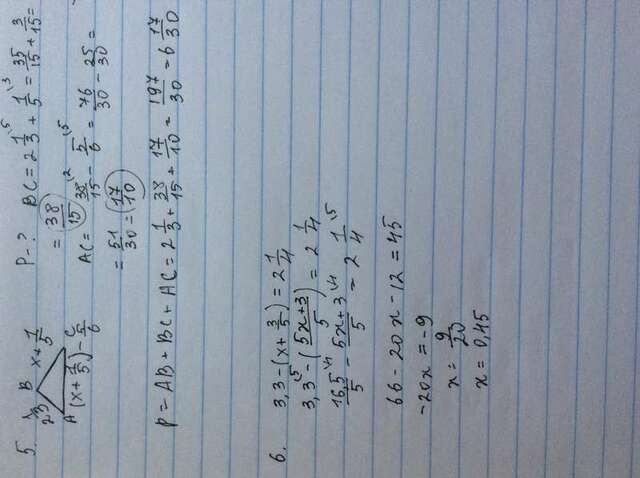 5. 2 1/3 B x+1/5 P-? BC = 2 1/3 + 1/5 = 35/15 + 3/15 =
= 38/15
A C (x+1/5)-5/6 AC = 38/15 - 5/6 = 76/30 - 25/30 =
= 51/30 = 17/10
P = AB + BC + AC = 2 1/3 + 38/15 + 17/10 = 197/30 = 6 17/30
6. 3,3-(x+3/5) = 2 1/4
3,3 - (5x+3/5) = 2 1/4
16,5/5 - 5x+3/5 = 2 1/4
66 - 20x - 12 = 45
-20x = -9
x = 9/20
x = 0,45